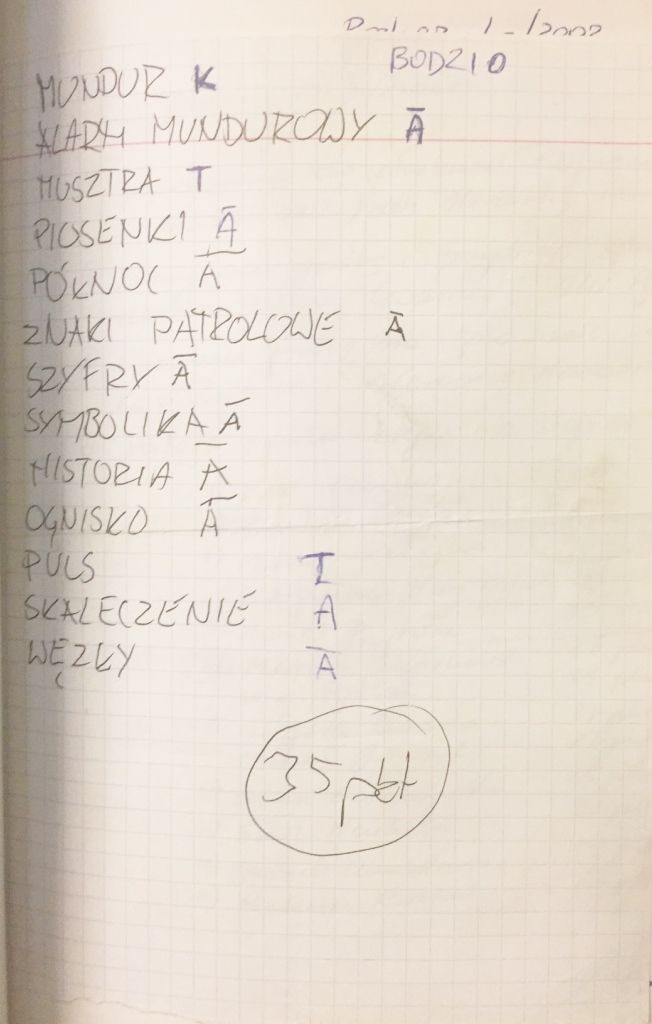 BODZIO
MUNDUR K
ALARM MUNDUROWY Ā
MUSZTRA T
PIOSENKI Ā
PÓŁNOC Ā
ZNAKI PATROLOWE Ā
SZYFRY Ā
SYMBOLIKA Ā
HISTORIA Ā
OGNISKO Ā
PULS I
SKALECZENIE A
WĘZŁY Ā
35 pkt